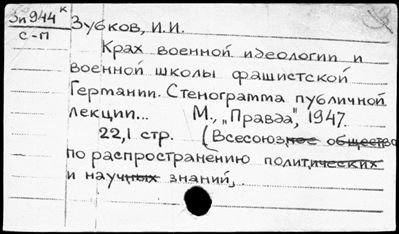 Зп944 к Зубков, И.И.
С-П
Крах военной идеологии и
военной школы фашистской
Германии. Стенограмма публичной
лекции... М., „Правда", 1947.
22,1 стр. (Всесоюзное общество
по распространению политических
и научных знаний).